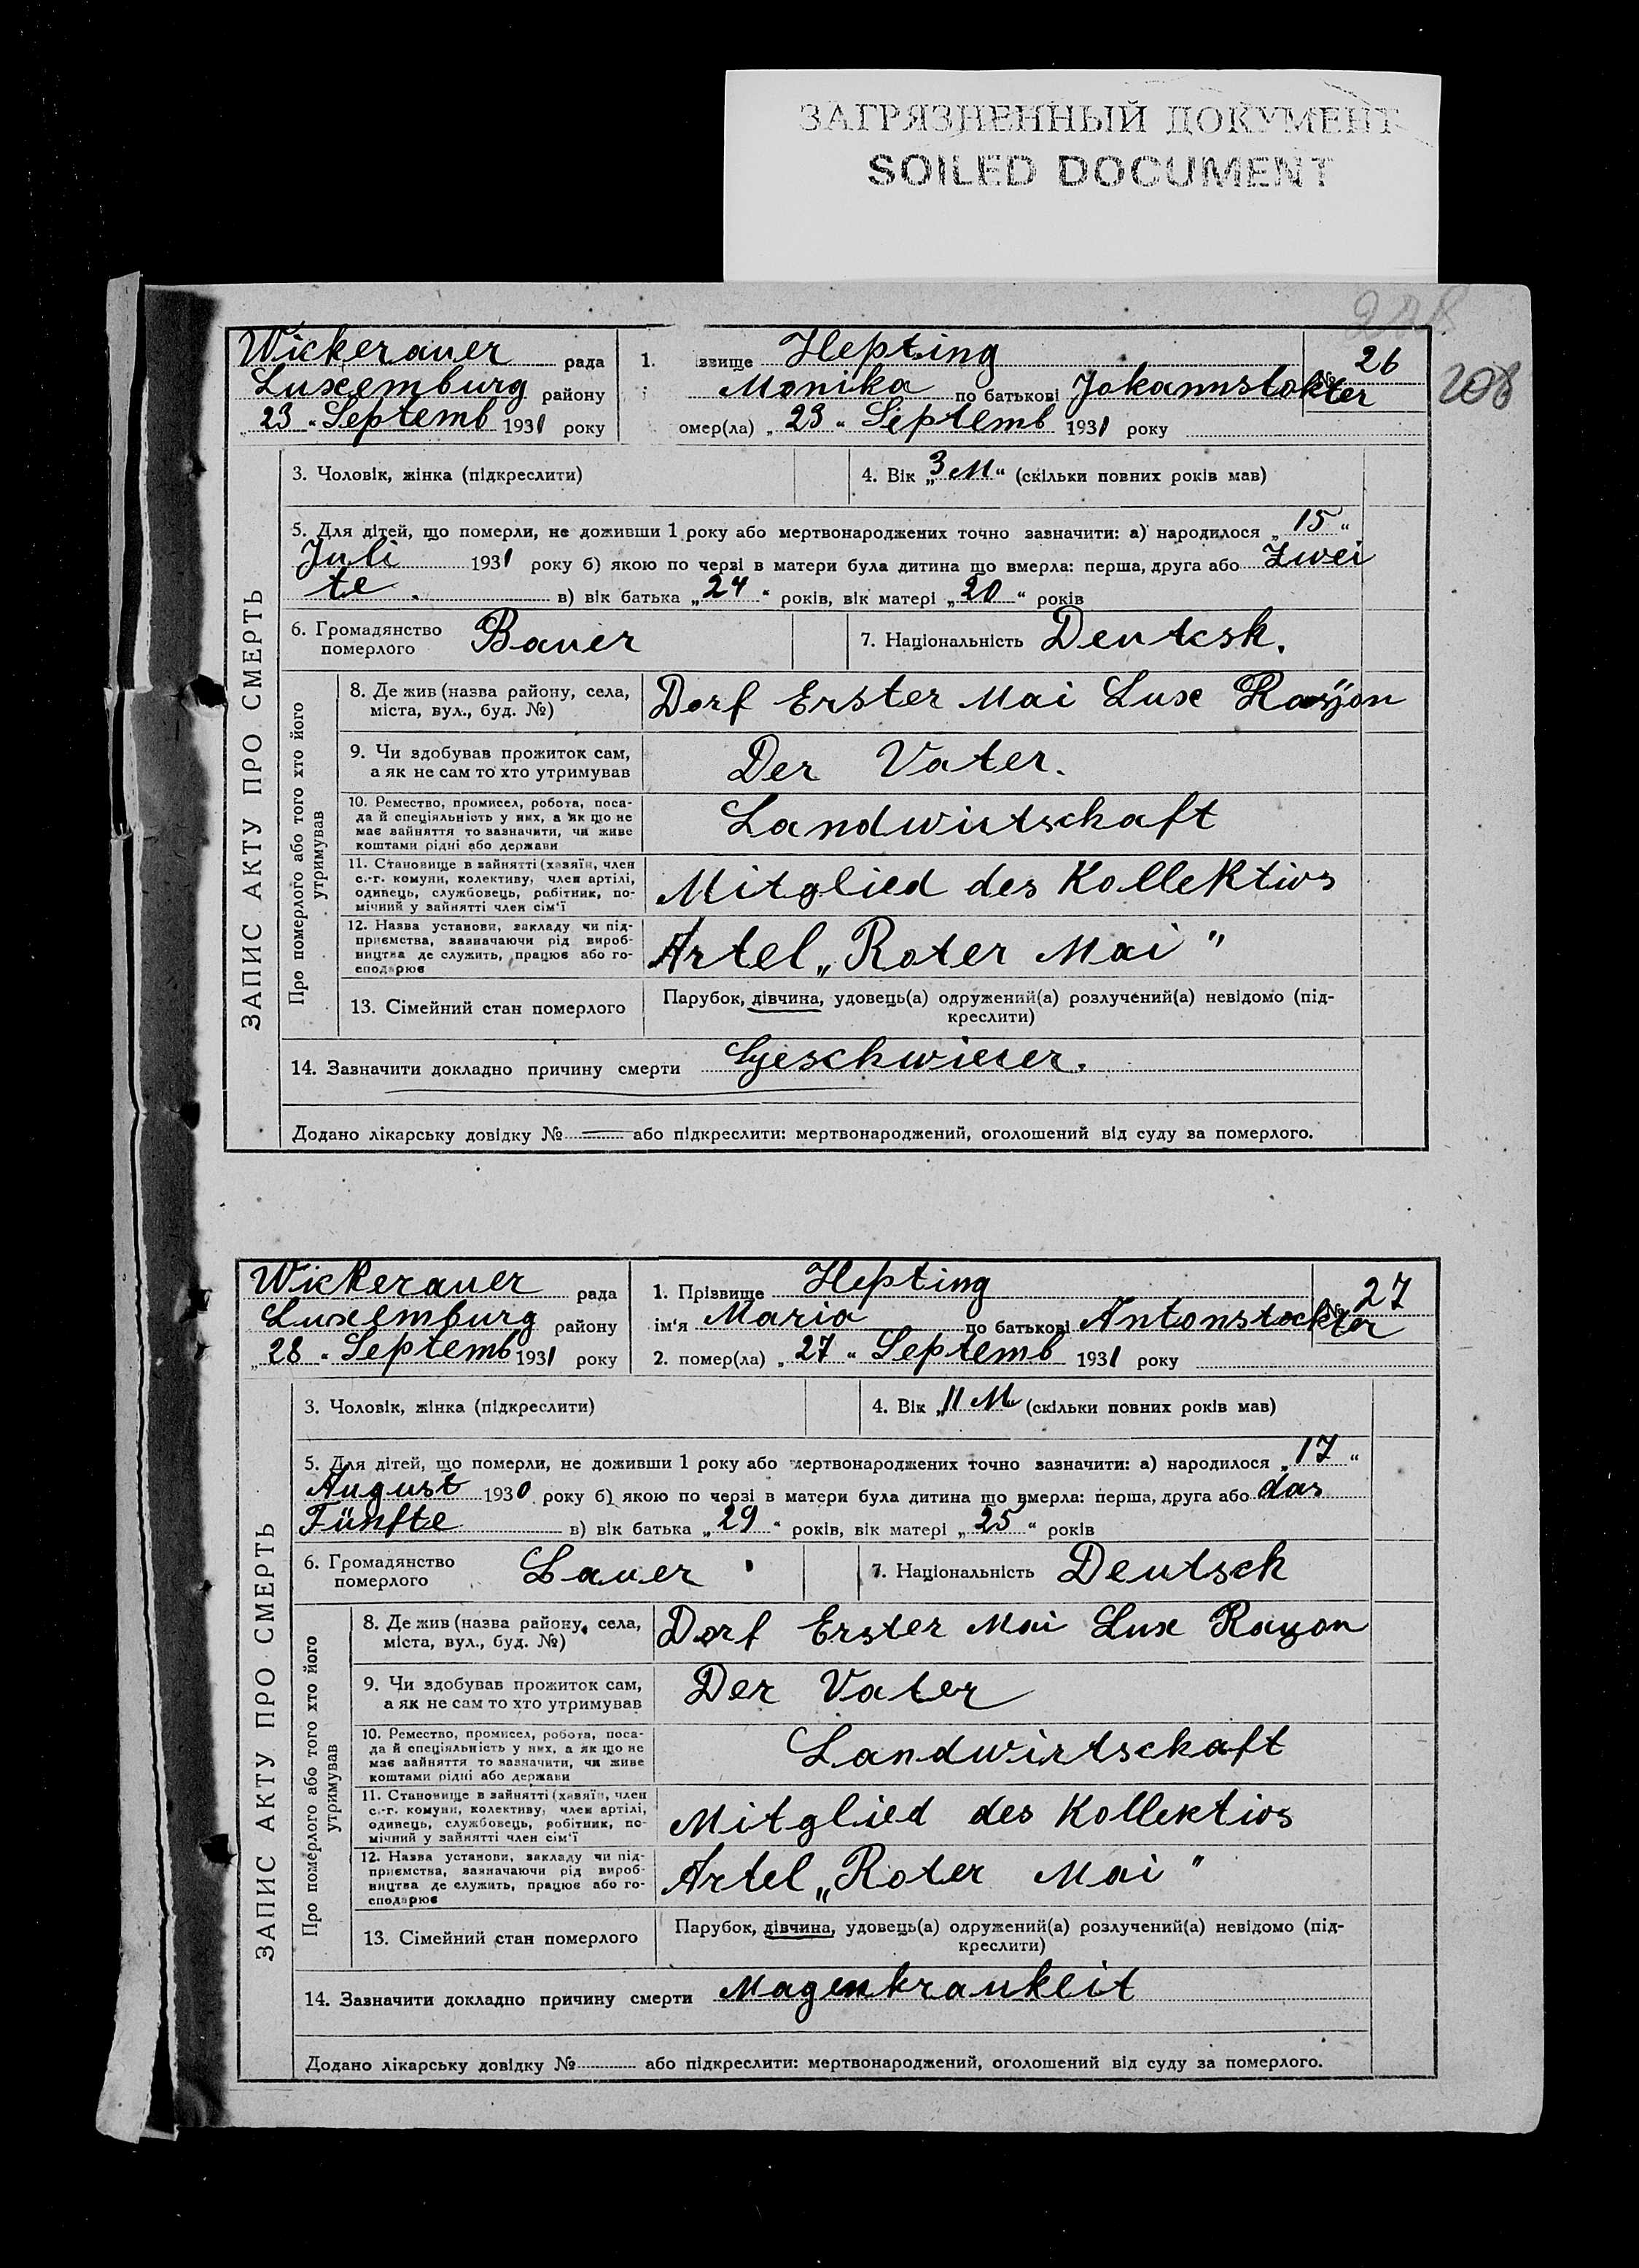 ЗАГРЯЗНЕННЫЙ ДОКУМЕНТ
SOILED DOCUMENT
208
Wickerauer рада
Luxemburg району
„23“ Septemb 1931 року
1. звище Hepting
Monika по батькові Johannstokter
омер(ла) „23“ Septemb 1931 року
№ 26
ЗАПИС АКТУ ПРО СМЕРТЬ
3. Чоловік, жінка (підкреслити)
4. Вік „3 M“ (скільки повних років мав)
5. Для дітей, що померли, не доживши 1 року або мертвонароджених точно зазначити: а) народилося „15“
Juli 1931 року б) якою по черзі в матери була дитина що вмерла: перша, друга або Zwei
te. в) вік батька „24“ років, вік матері „20“ років
6. Громадянство
померлого
Bauer
7. Національність Deutcsh.
Про померлого або того хто його
утримував
8. Де жив (назва району, села,
міста, вул., буд. №)
Dorf Erster Mai Lux Rayon
9. Чи здобував прожиток сам,
а як не сам то хто утримував
Der Vater.
10. Ремество, промисел, робота, поса-
да й спеціяльність у них, а як що не
має зайняття то зазначити, чи живе
коштами рідні або держави
Landwirtschaft
11. Становище в зайнятті (хазяїн, член
с.-г. комуни, колективу, член артілі,
одинець, службовець, рабітник, по-
мічний у зайнятті член сім'ї
Mitglied des Kollektivs
12. Назва установи, закладу чи під-
приємства, зазначаючи рід вироб-
ництва де служить, працює або го-
сподарює
Artel „Roter Mai"
13. Сімейний стан померлого
Парубок, дівчина, удовець(а) одружений(а) розлучений(а) невідомо (під-
креслити)
14. Зазначити докладно причину смерти
Додано лікарську довідку № — або підкреслити: мертвонароджений, оголошений від суду за померлого.
Wickerauer рада
Luxemburg району
„28“ Septemb 1931 року
1. Прізвище Hepting
ім'я Maria по батькові Antonstockter
2. помер(ла) „27“ Septemb 1931 року
№ 27
ЗАПИС АКТУ ПРО СМЕРТЬ
3. Чоловік, жінка (підкреслити)
4. Вік „11 M (скільки повних років мав)
5. Для дітей, що померли, не доживши 1 року або мертвонароджених точно зазначити: а) народилося „17“
August 1930 року б) якою по черзі в матери була дитина що вмерла: перша, друга або das
Fünfte в) вік батька „29“ років, вік матері „25“ років
6. Громадянство
померлого
Bauer
7. Національність Deutsch
Про померлого або того хто його
утримував
8. Де жив (назва району, села,
міста, вул., буд. №)
Dorf Erster Mai Lux Rayon
9. Чи здобував прожиток сам,
а як не сам то хто утримував
Der Vater
10. Ремество, промисел, робота, поса-
да й спеціяльність у них, а як що не
має зайняття то зазначити, чи живе
коштами рідні або держави
Landwirtschaft
11. Становище в зайнятті (хазяїн, член
с.-г. комуни, колективу, член артілі,
одинець, службовець, робітник, по-
мічний у зайнятті член сім'ї
Mitglied des Kollektivs
12. Назва установи, закладу чи під-
приємства, зазначаючи рід вироб-
ництва де служить, працює або го-
сподарює
Artel „Roter Mai"
13. Сімейний стан померлого
Парубок, дівчина, удовець(а) одружений(а) розлучений(а) невідомо (під-
креслити)
14. Зазначити докладно причину смерти Magenkrankeit
Додано лікарську довідку № або підкреслити: мертвонароджений, оголошений від суду за померлого.